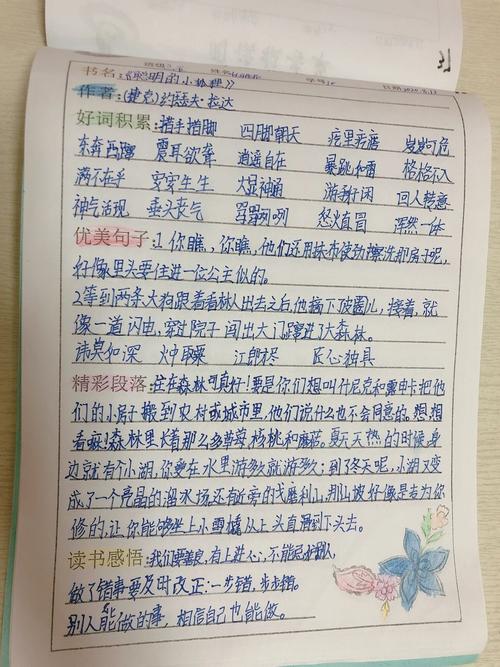 书名:《聪明的小狐狸》
作者:(捷克)约瑟夫·拉达
好词积累:蹑手蹑脚 四脚朝天 疙里疙瘩 岌岌可危
东奔西蹿 震耳欲聋 逍遥自在 暴跳如雷 格格不入
满不在乎 大显神通 游手好闲 回人转意
神气活现 垂头丧气 骂骂咧咧 怒火直冒 浑然一体
优美句子:1你瞧,你瞧,他们还用抹布使劲擦洗那房子呢,
好像里头要住进一位公主似的。
2等到两条大狗跟着看林人出去之后,他摘下破圈儿,接着,就
像一道闪电,穿过院子闯出大门蹿进了大森林。
讳莫如深 火中取栗 江郎 匠心独具
精彩段落:住在森林可真好!要是你们想叫什尼克和 把他
们的小房子搬到农村或城市里,他们说什么也不会同意的。想想
看嘛!森林里长着那么多草莓,核桃和蘑菇。夏天天热的时候,身
边就有个小湖,你要在水里游多久就游多久;到了冬天呢,小湖又变
成了一个亮晶的溜冰场,还有旁的戈磨利山,那山坡好像是专为你
修的,让你能够坐上小雪橇从上头直滑到下头去。
读书感悟:我们要善良,有上进心,不能 别人,
做了错事要及时改正:一步错,步步错。
别人能做的事,相信自己也能做。